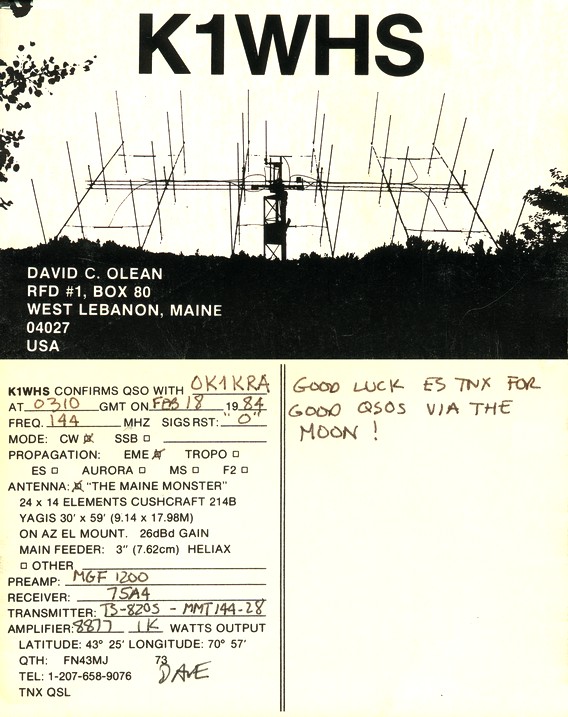 K1WHS
DAVID C. OLEAN
RFD #1, BOX 80
WEST LEBANON, MAINE
04027
USA
K1WHS CONFIRMS QSO WITH OK1KRA
AT 0310 GMT ON FEB 18 1984
FREQ. 144 MHZ SIGS RST: "O"
MODE: CW ☒ SSB □
PROPAGATION: EME ☒ TROPO □
ES □ AURORA □ MS □ F2 □
ANTENNA: ☒ "THE MAINE MONSTER"
24 x 14 ELEMENTS CUSHCRAFT 214B
YAGIS 30' x 59' (9.14 x 17.98M)
ON AZ EL MOUNT. 26dBd GAIN
MAIN FEEDER: 3" (7.62cm) HELIAX
□ OTHER
PREAMP: MGF 1200
RECEIVER: 75A4
TRANSMITTER: TS-820S - MMT144-28
AMPLIFIER: 8877 1K WATTS OUTPUT
LATITUDE: 43° 25' LONGITUDE: 70° 57'
QTH: FN43MJ 73
TEL: 1-207-658-9076 DAVE
TNX QSL
GOOD LUCK ES TNX FOR
GOOD QSOS VIA THE
MOON !